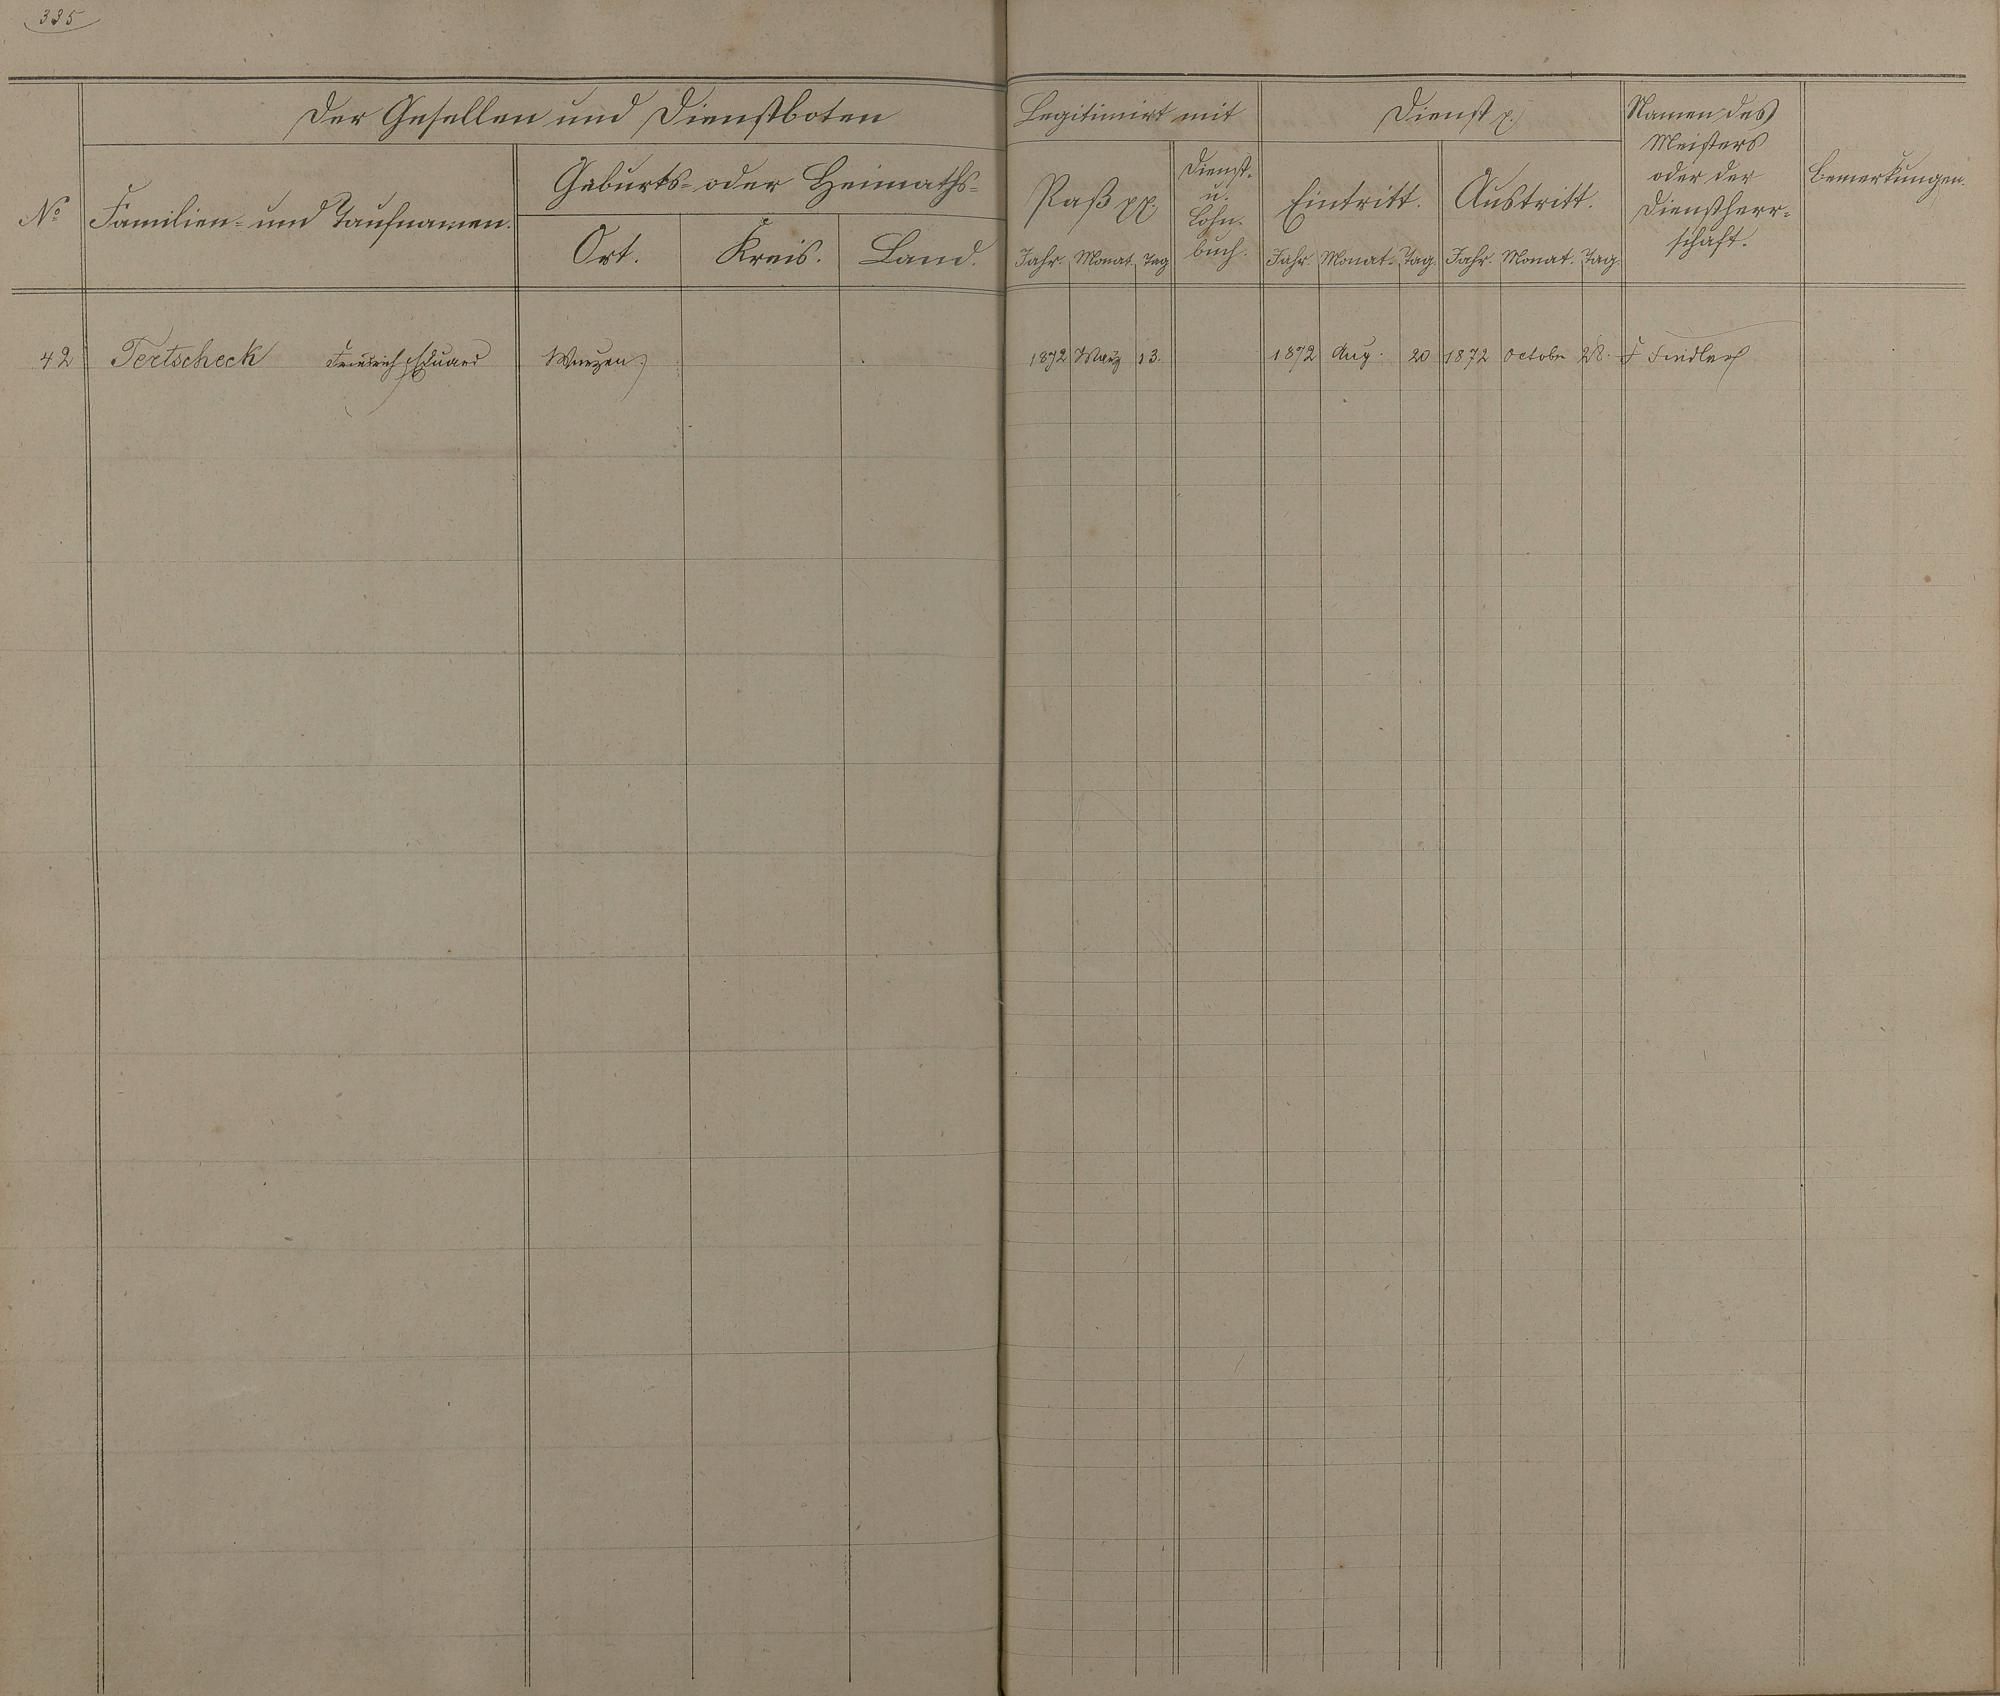 335
Der Gesellen und Dienstboten
Legitimirt mit
Dienst p.
Namen des
Meisters
oder der
Dienstherr-
schaft.
Bemerkungen.
No
Familien- und Taufnamen.
Geburts- oder Heimaths-
Ort.
Kreis.
Land.
Paß pp.
Dienst-
u.
Lohn-
buch.
Eintritt.
Austritt.
Jahr. Monat. Tag
Jahr. Monat. Tag.
Jahr. Monat. Tag.
42 Tertscheck Friedrich Eduard Wurzen. 1872 März 13. 1872 Aug. 20 1872 October 28. F Fiedler